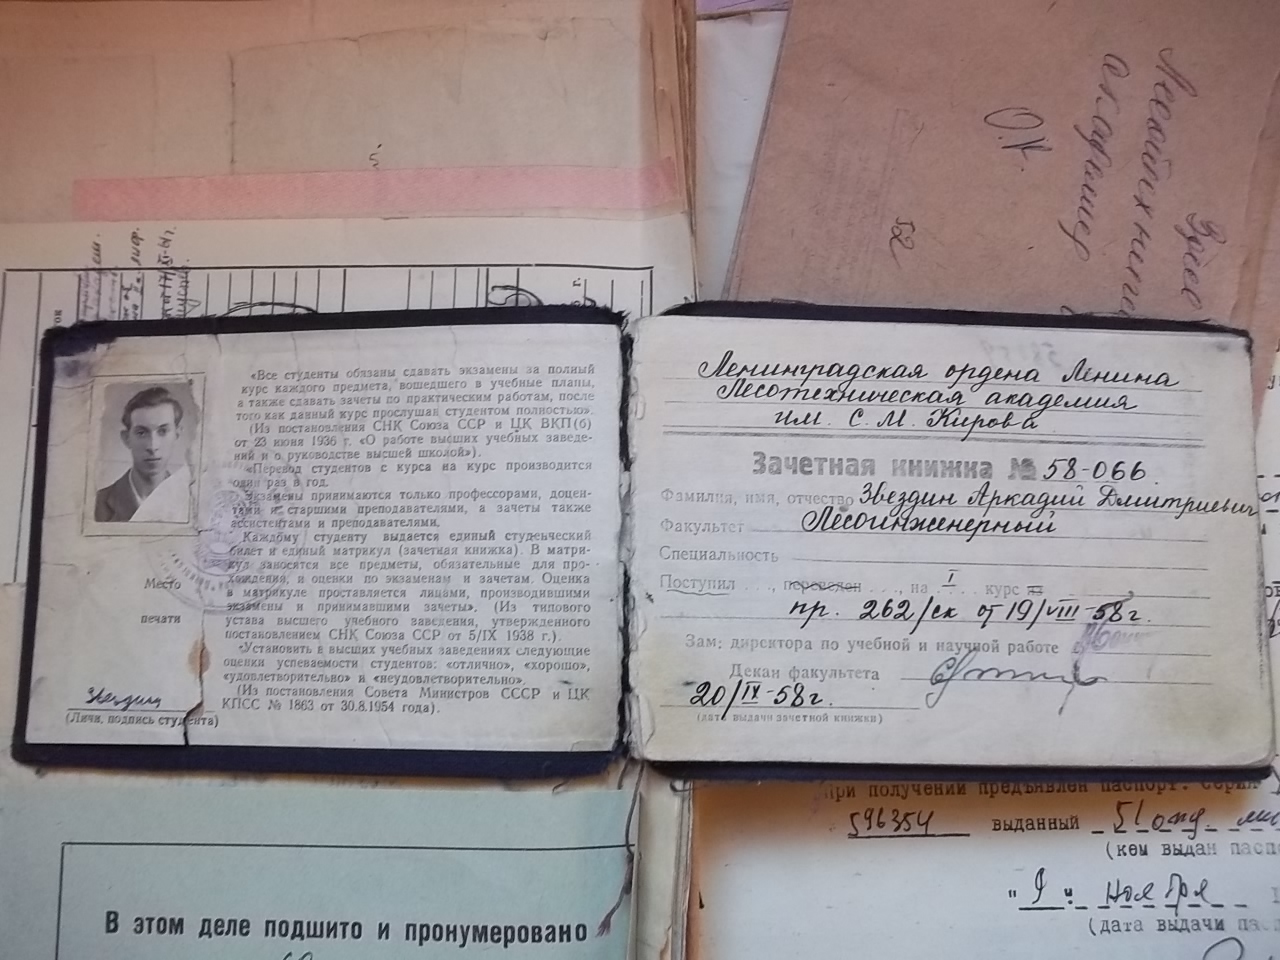 Лесотехническая
академия
О.К
52
5
«Все студенты обязаны сдавать экзамены за полный
курс каждого предмета, вошедшего в учебные планы,
а также сдавать зачеты по практическим работам, после
того как данный курс прослушан студентом полностью».
(Из постановления СНК Союза ССР и ЦК ВКП(б)
от 23 июня 1936 г. «О работе высших учебных заведе-
ний и о руководстве высшей школой»).
«Перевод студентов с курса на курс производится
один раз в год.
Экзамены принимаются только профессорами, доцен-
тами и старшими преподавателями, а зачеты также
ассистентами и преподавателями.
Каждому студенту выдается единый студенческий
билет и единый матрикул (зачетная книжка). В матри-
кул заносятся все предметы, обязательные для про-
хождения, и оценки по экзаменам и зачетам. Оценка
в матрикуле проставляется лицами, производившими
экзамены и принимавшими зачеты». (Из типового
устава высшего учебного заведения, утвержденного
постановлением СНК Союза ССР от 5/IX 1938 г.).
«Установить в высших учебных заведениях следующие
оценки успеваемости студентов: «отлично», «хорошо»,
«удовлетворительно» и «неудовлетворительно».
(Из постановления Совета Министров СССР и ЦК
КПСС № 1863 от 30.8.1954 года).
Место
печати
Звездин
(Личн. подпись студента)
Ленинградская ордена Ленина
Лесотехническая академия
им. С. М. Кирова
Зачетная книжка № 58-066.
Фамилия, имя, отчество Звездин Аркадий Дмитриевич
Факультет Лесоинженерный
Специальность
Поступил . . ., переведен . . ., на I курс из
пр. 262/ск от 19/VIII-58г.
Зам. директора по учебной и научной работе
Декан факультета
20/IX-58г.
(дата выдачи зачетной книжки)
В этом деле подшито и пронумеровано
При получении предъявлен паспорт: Серия
596354 выданный 51 отд. мил
(кем выдан пасп
" 9 " ноября
(дата выдачи пас